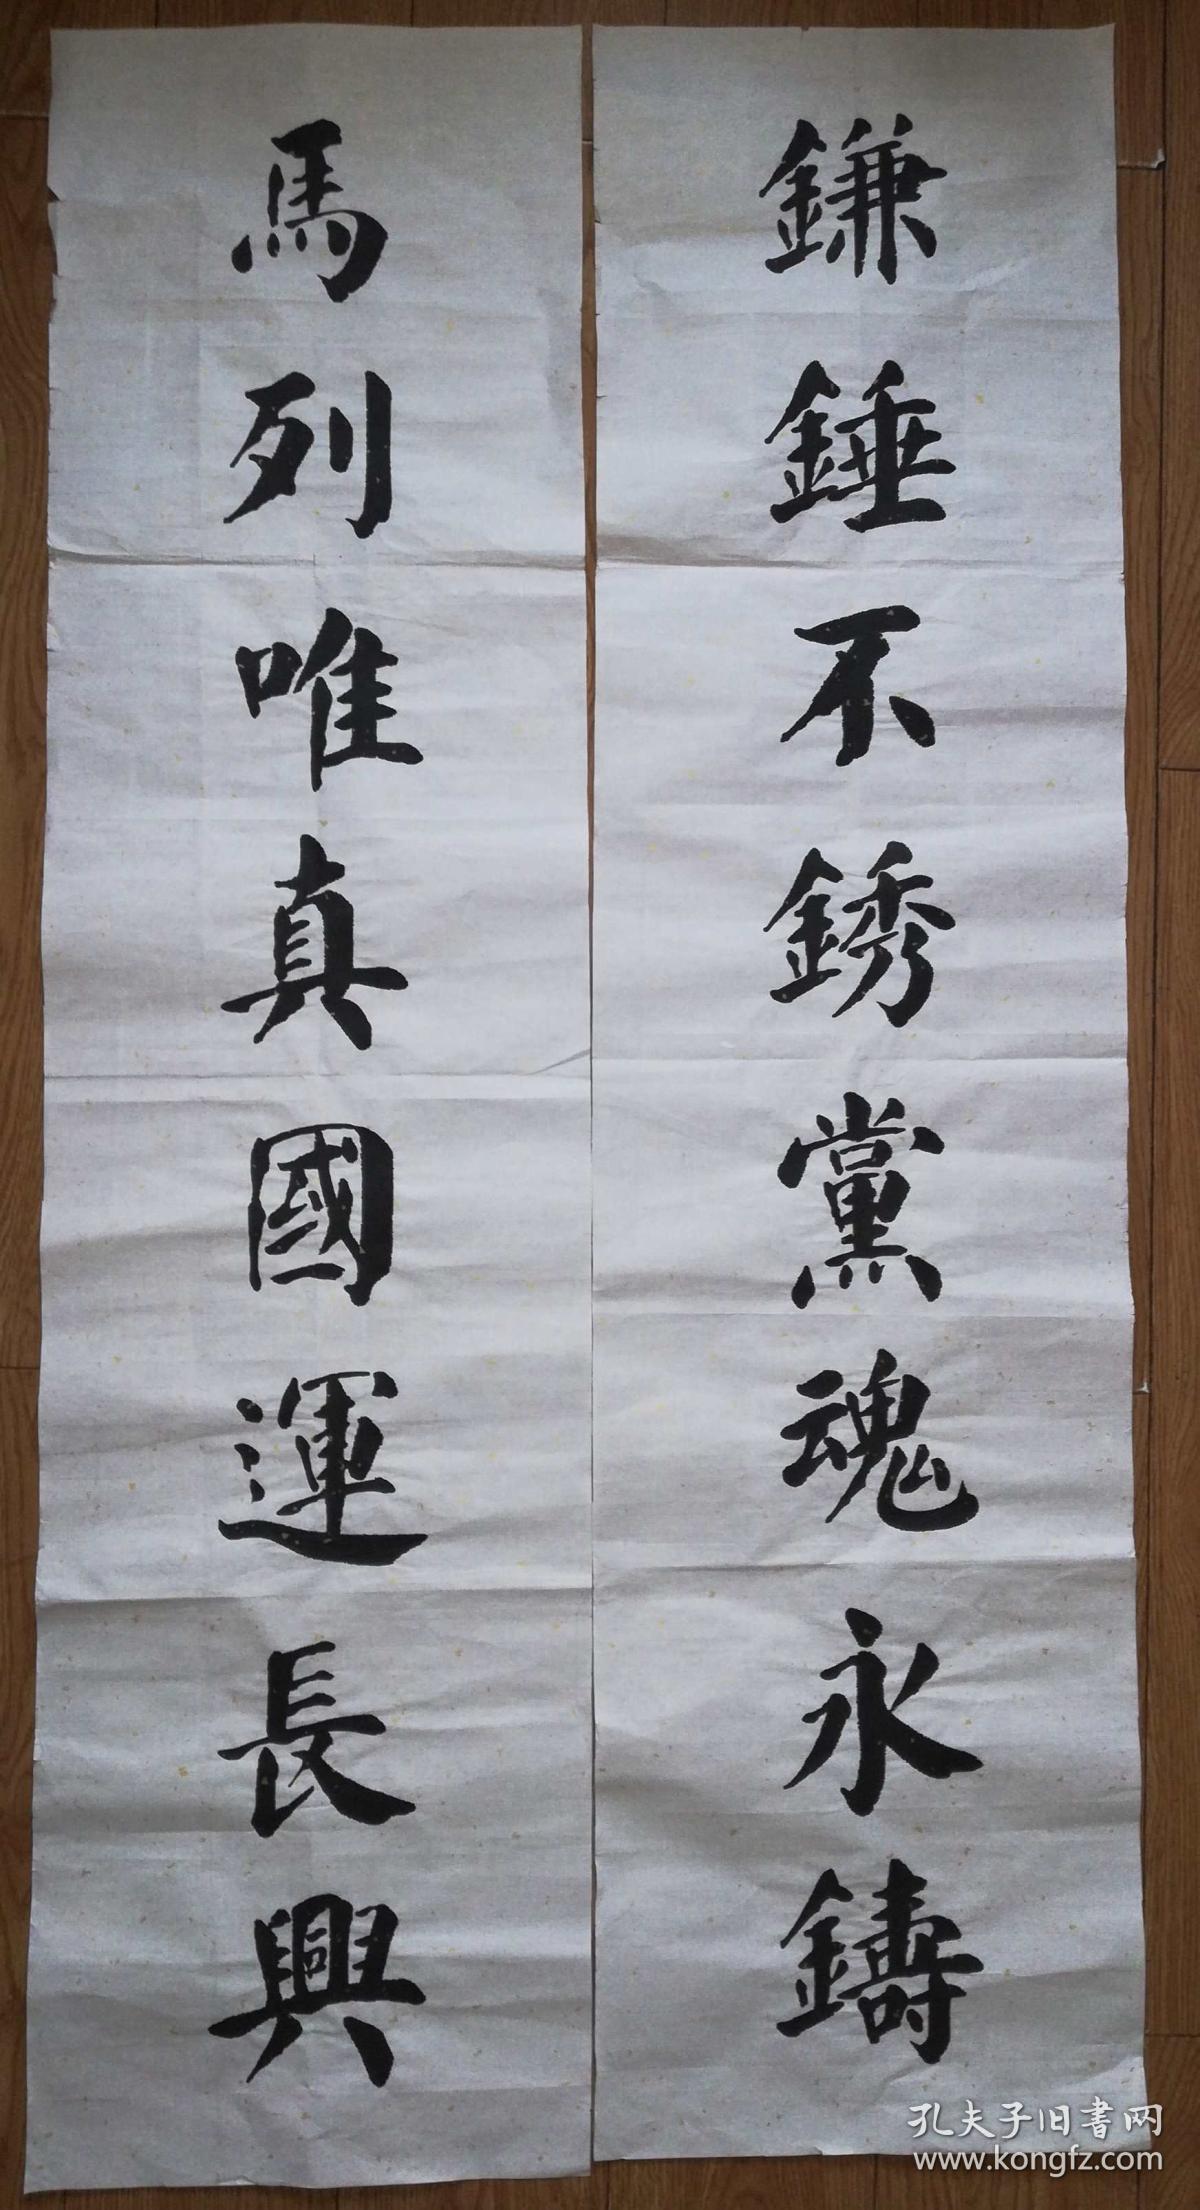 鐮錘不銹黨魂永鑄
馬列唯真國運長興
孔夫子旧書网
www.kongfz.com